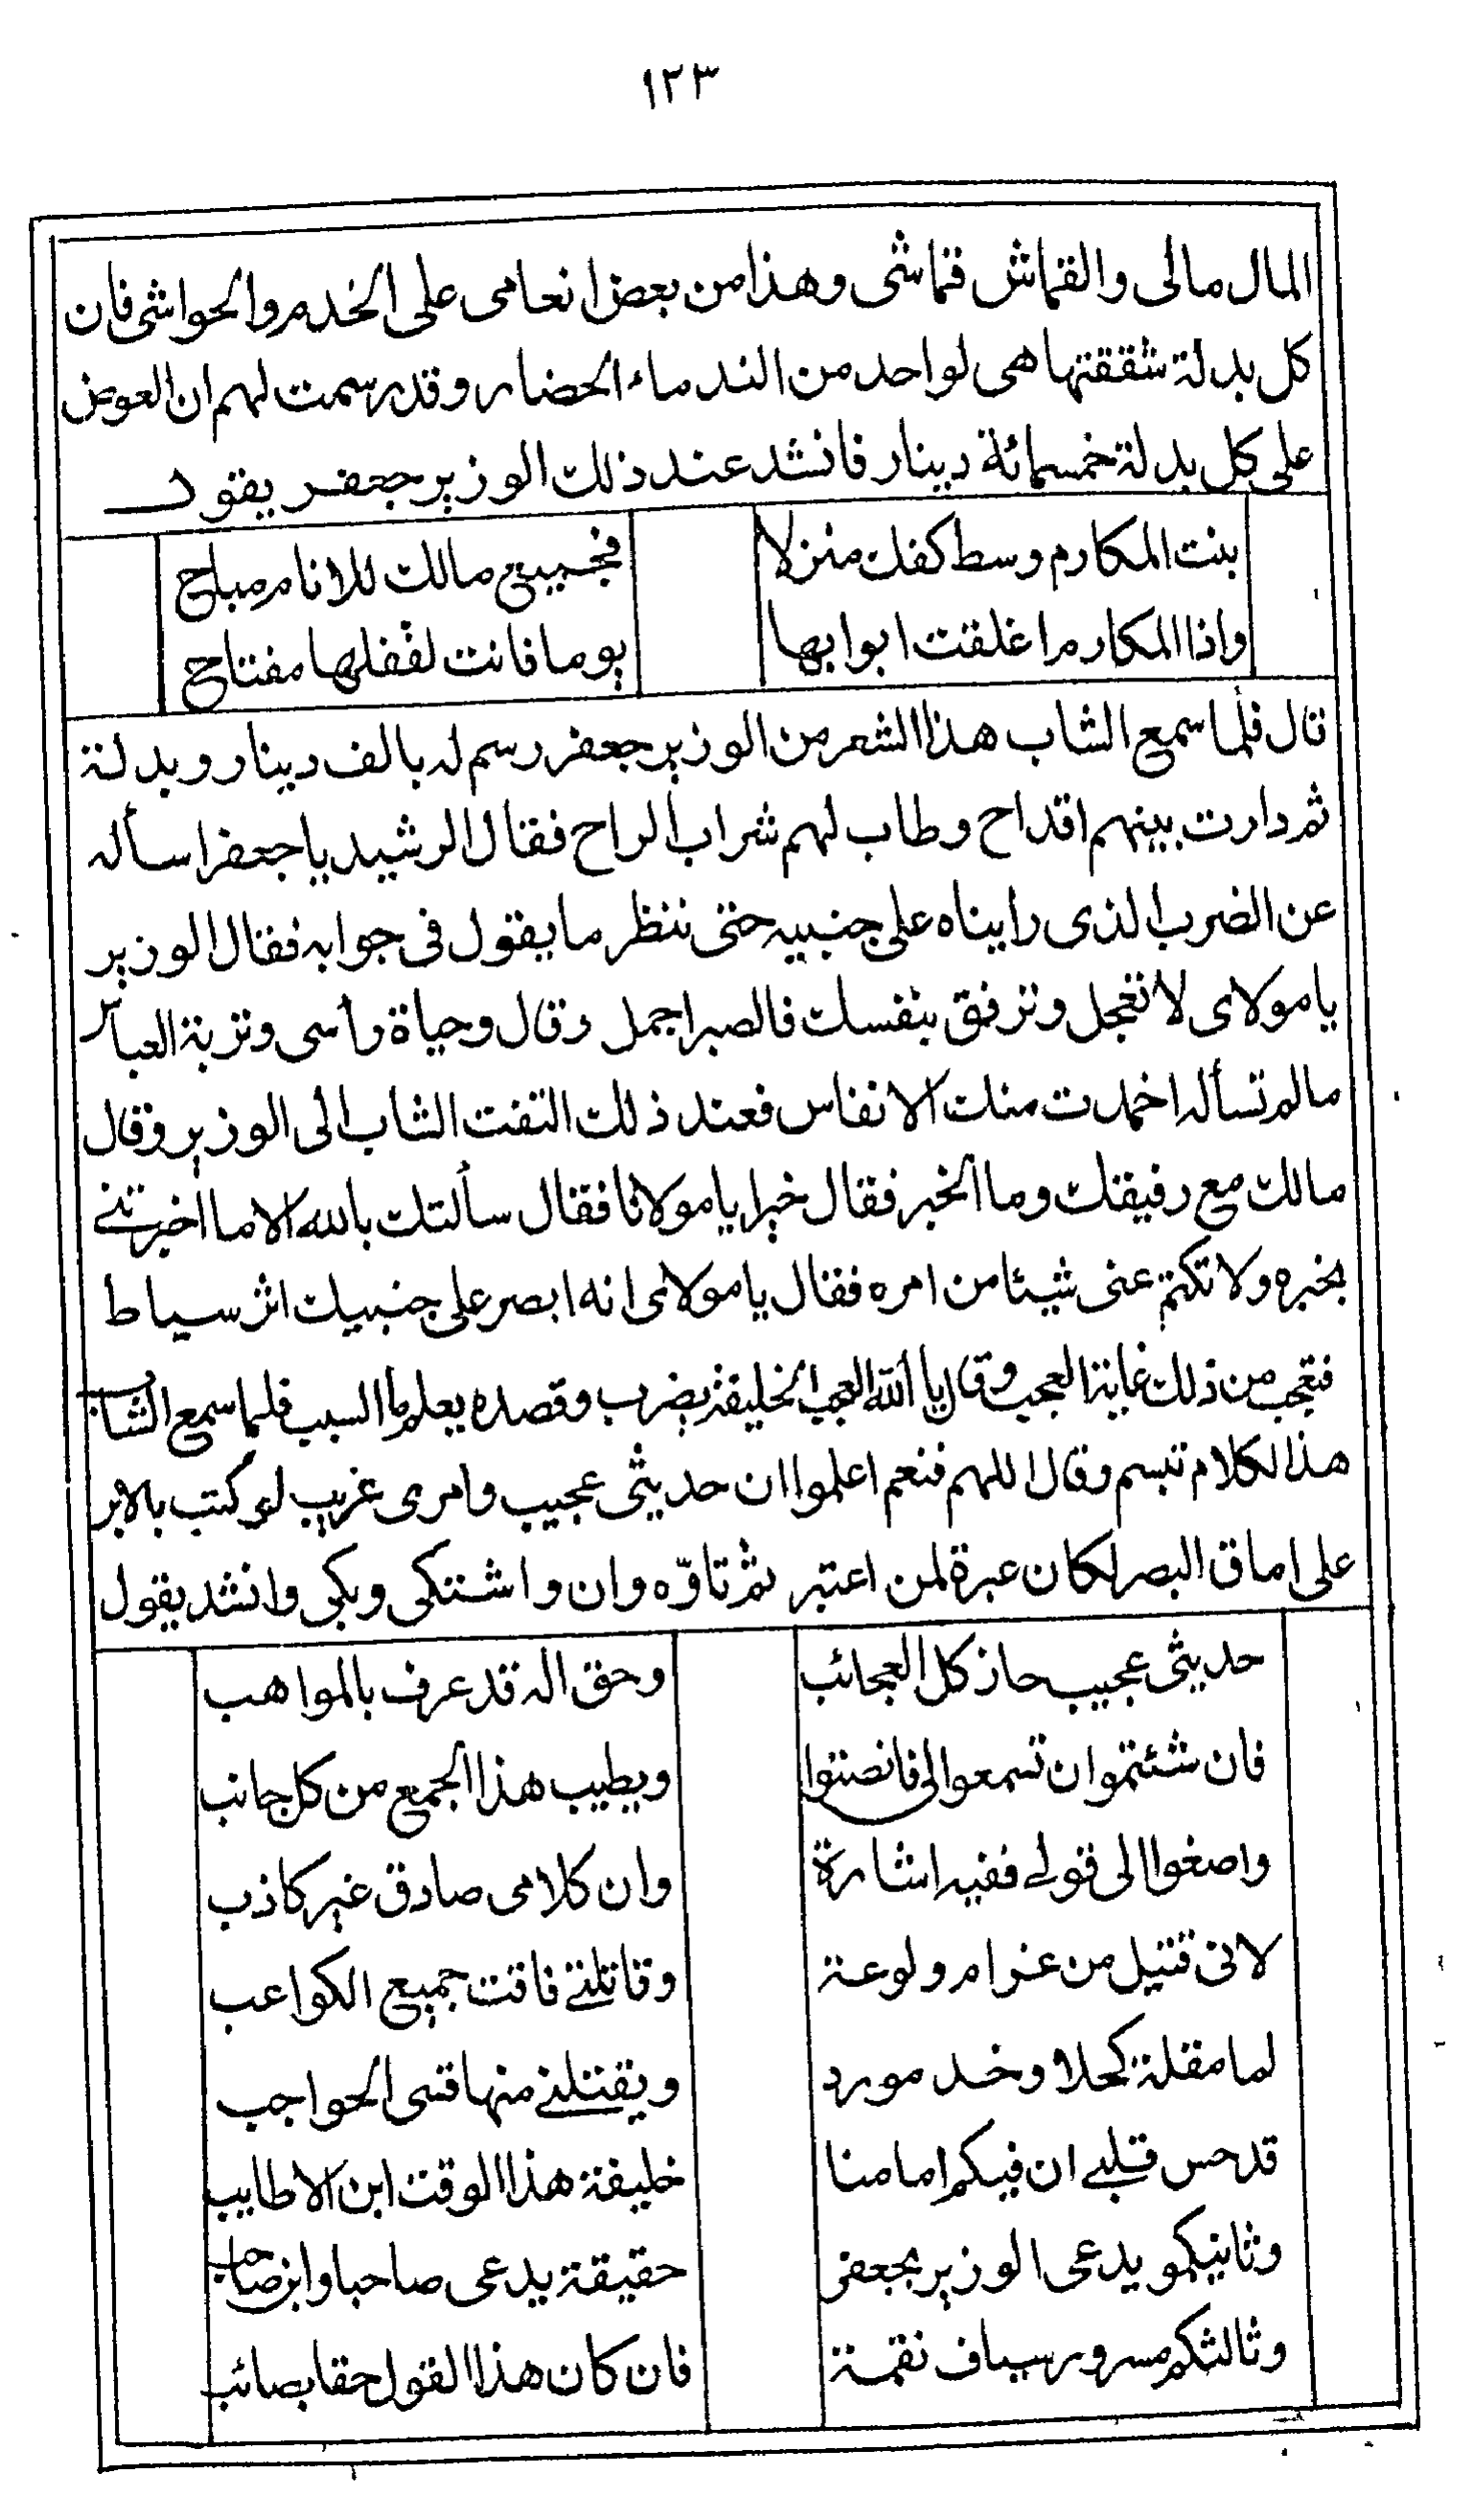 ١٢٣
المال مالى والقماش قماشى وهذا من بعض انعامى على الخدم والحواشى فان
كل بدلة شققتها هى لواحد من الندماء الحضار وقد رسمت لهم ان العوض
على كل بدلة خمسمائة دينار فانشد عند ذلك الوزير جعفر يقول
بنت المكارم وسط كفك منزلا فجميع مالك للانام مباح
واذا المكارم اغلقت ابوابها يوما فانت لقفلها مفتاح
قال فلما سمع الشاب هذا الشعر من الوزير جعفر رسم له بالف دينار وبدلة
ثم دارت بينهم اقداح وطاب لهم شراب الراح فقال الرشيد يا جعفر اسأله
عن الضرب الذى رايناه على جنبيه حتى ننظر ما يقول فى جوابه فقال الوزير
يا مولاى لا تعجل وترفق بنفسك فالصبر اجمل وقال وحياة رأسى وتربة العباس
ما لم تسأله اخمدت منك الانفاس فعند ذلك التفت الشاب الى الوزير وقال
مالك مع رفيقك وما الخبر فقال خيرا يا مولانا فقال سألتك بالله الا ما اخبرتنى
بخبره ولا تكتم عنى شيئا من امره فقال يا مولاى انه ابصر على جنبيك اثر سياط
فتعجب من ذلك غاية العجب وقال يا الله العجب الخليفة يضرب وقصده يعلم ما السبب فلما سمع الشاب
هذا لكلام تبسم وقال اللهم فنعم اعلموا ان حديثى عجيب وامرى غريب لو كتب بالابر
على اماق البصر لكان عبرة لمن اعتبر ثم تاوّه وان واشتكى وبكى وانشد يقول
حديثى عجيب حاز كل العجائب وحق اله قد عرف بالمواهب
فان شئتموا ان تسمعوا لى فانصتوا ويطيب هذا الجمع من كل جانب
واصغوا الى قولى ففيه اشارة وان كلامى صادق غير كاذب
لانى قتيل من غرام ولوعة وقاتلتى فاقت جميع الكواعب
لها مقلة كحلا وخد مورد ويقتلنى منها قسى الحواجب
قد حس قلبى ان فيكم امامنا خليفة هذا الوقت ابن الاطايب
وثانيكمو يدعى الوزير بجعفر حقيقة يدعى صاحبا وابن صاحب
وثالثكم مسرور سياف نقمة فان كان هذا القول حقا بصائب